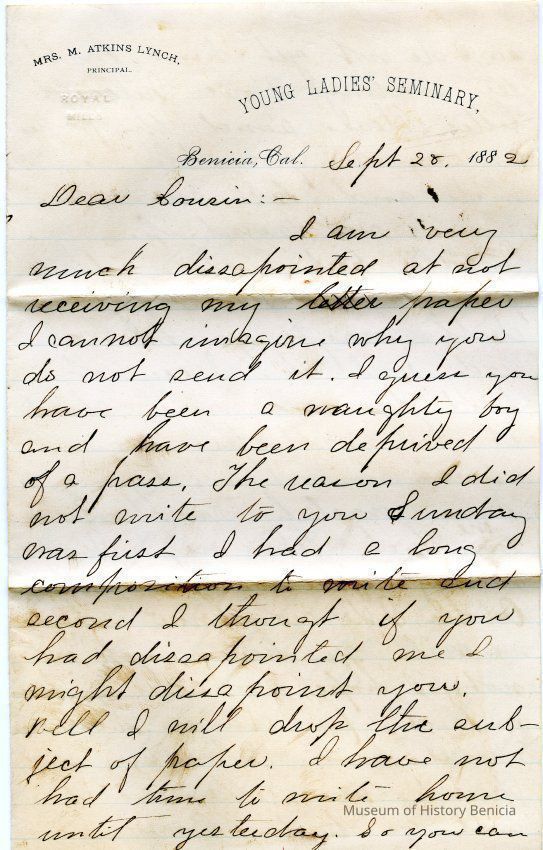 MRS. M. ATKINS LYNCH,
PRINCIPAL.
ROYAL
MILLS
YOUNG LADIES' SEMINARY,
Benicia, Cal. Sept 28. 1882
Dear Cousin:—
I am very
much dissapointed at not
receiving my letter paper
I cannot imagine why you
do not send it. I guess you
have been a naughty boy
and have been deprived
of a pass. The reason I did
not write to you Sunday
was first I had a long
composition to write and
second I thougt if you
had dissapointed me I
might dissapoint you.
Well I will drop the sub-
ject of paper. I have not
had time to write home
until yesterday. So you can
Museum of History Benicia